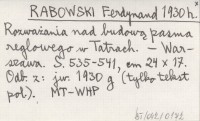 RABOWSKI Ferdynand 1930 h.
Rozważania nad budową pasma
reglowego w Tatrach. — War-
szawa. S. 535-541, cm 24 x 17.
Odb. z: jw. 1930 g (tylko tekst
pol.). MT-WHP